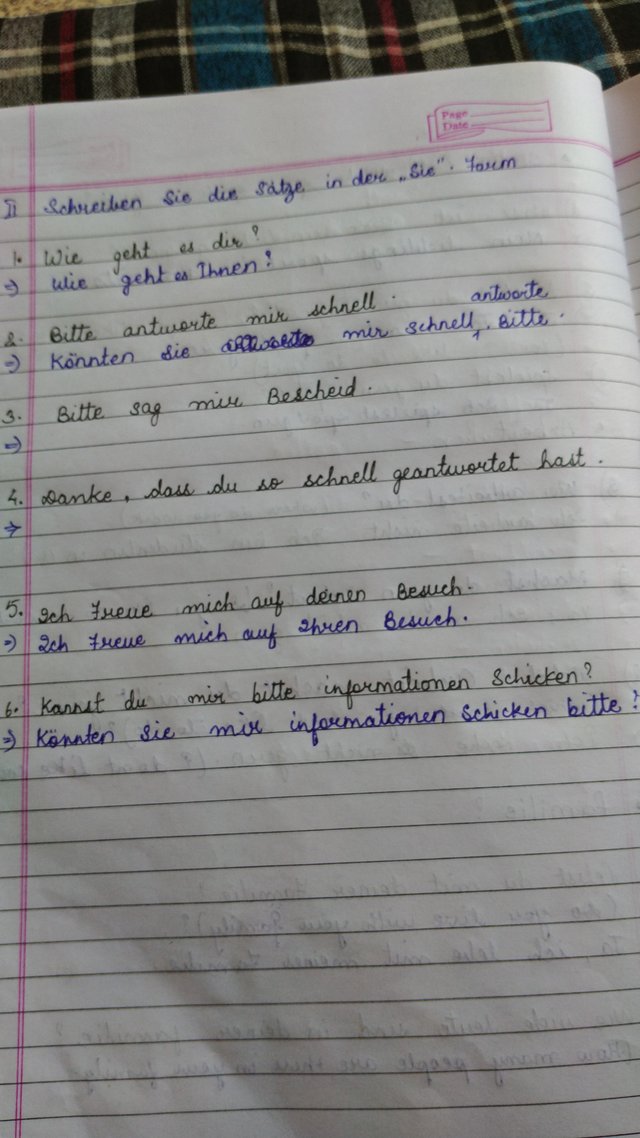 Page
Date
II Schreiben Sie die Sätze in der „Sie". Form
1. Wie geht es dir?
⇒ Wie geht es Ihnen?
2. Bitte antworte mir schnell.
antworte
⇒ Könnten Sie mir schnell, Bitte.
3. Bitte sag mir Bescheid.
⇒
4. Danke, dass du so schnell geantwortet hast.
⇒
5. Ich Freue mich auf deinen Besuch.
⇒ Ich Freue mich auf Ihren Besuch.
6. Kannst du mir bitte informationen Schicken?
⇒ Könnten Sie mir informationen Schicken bitte?